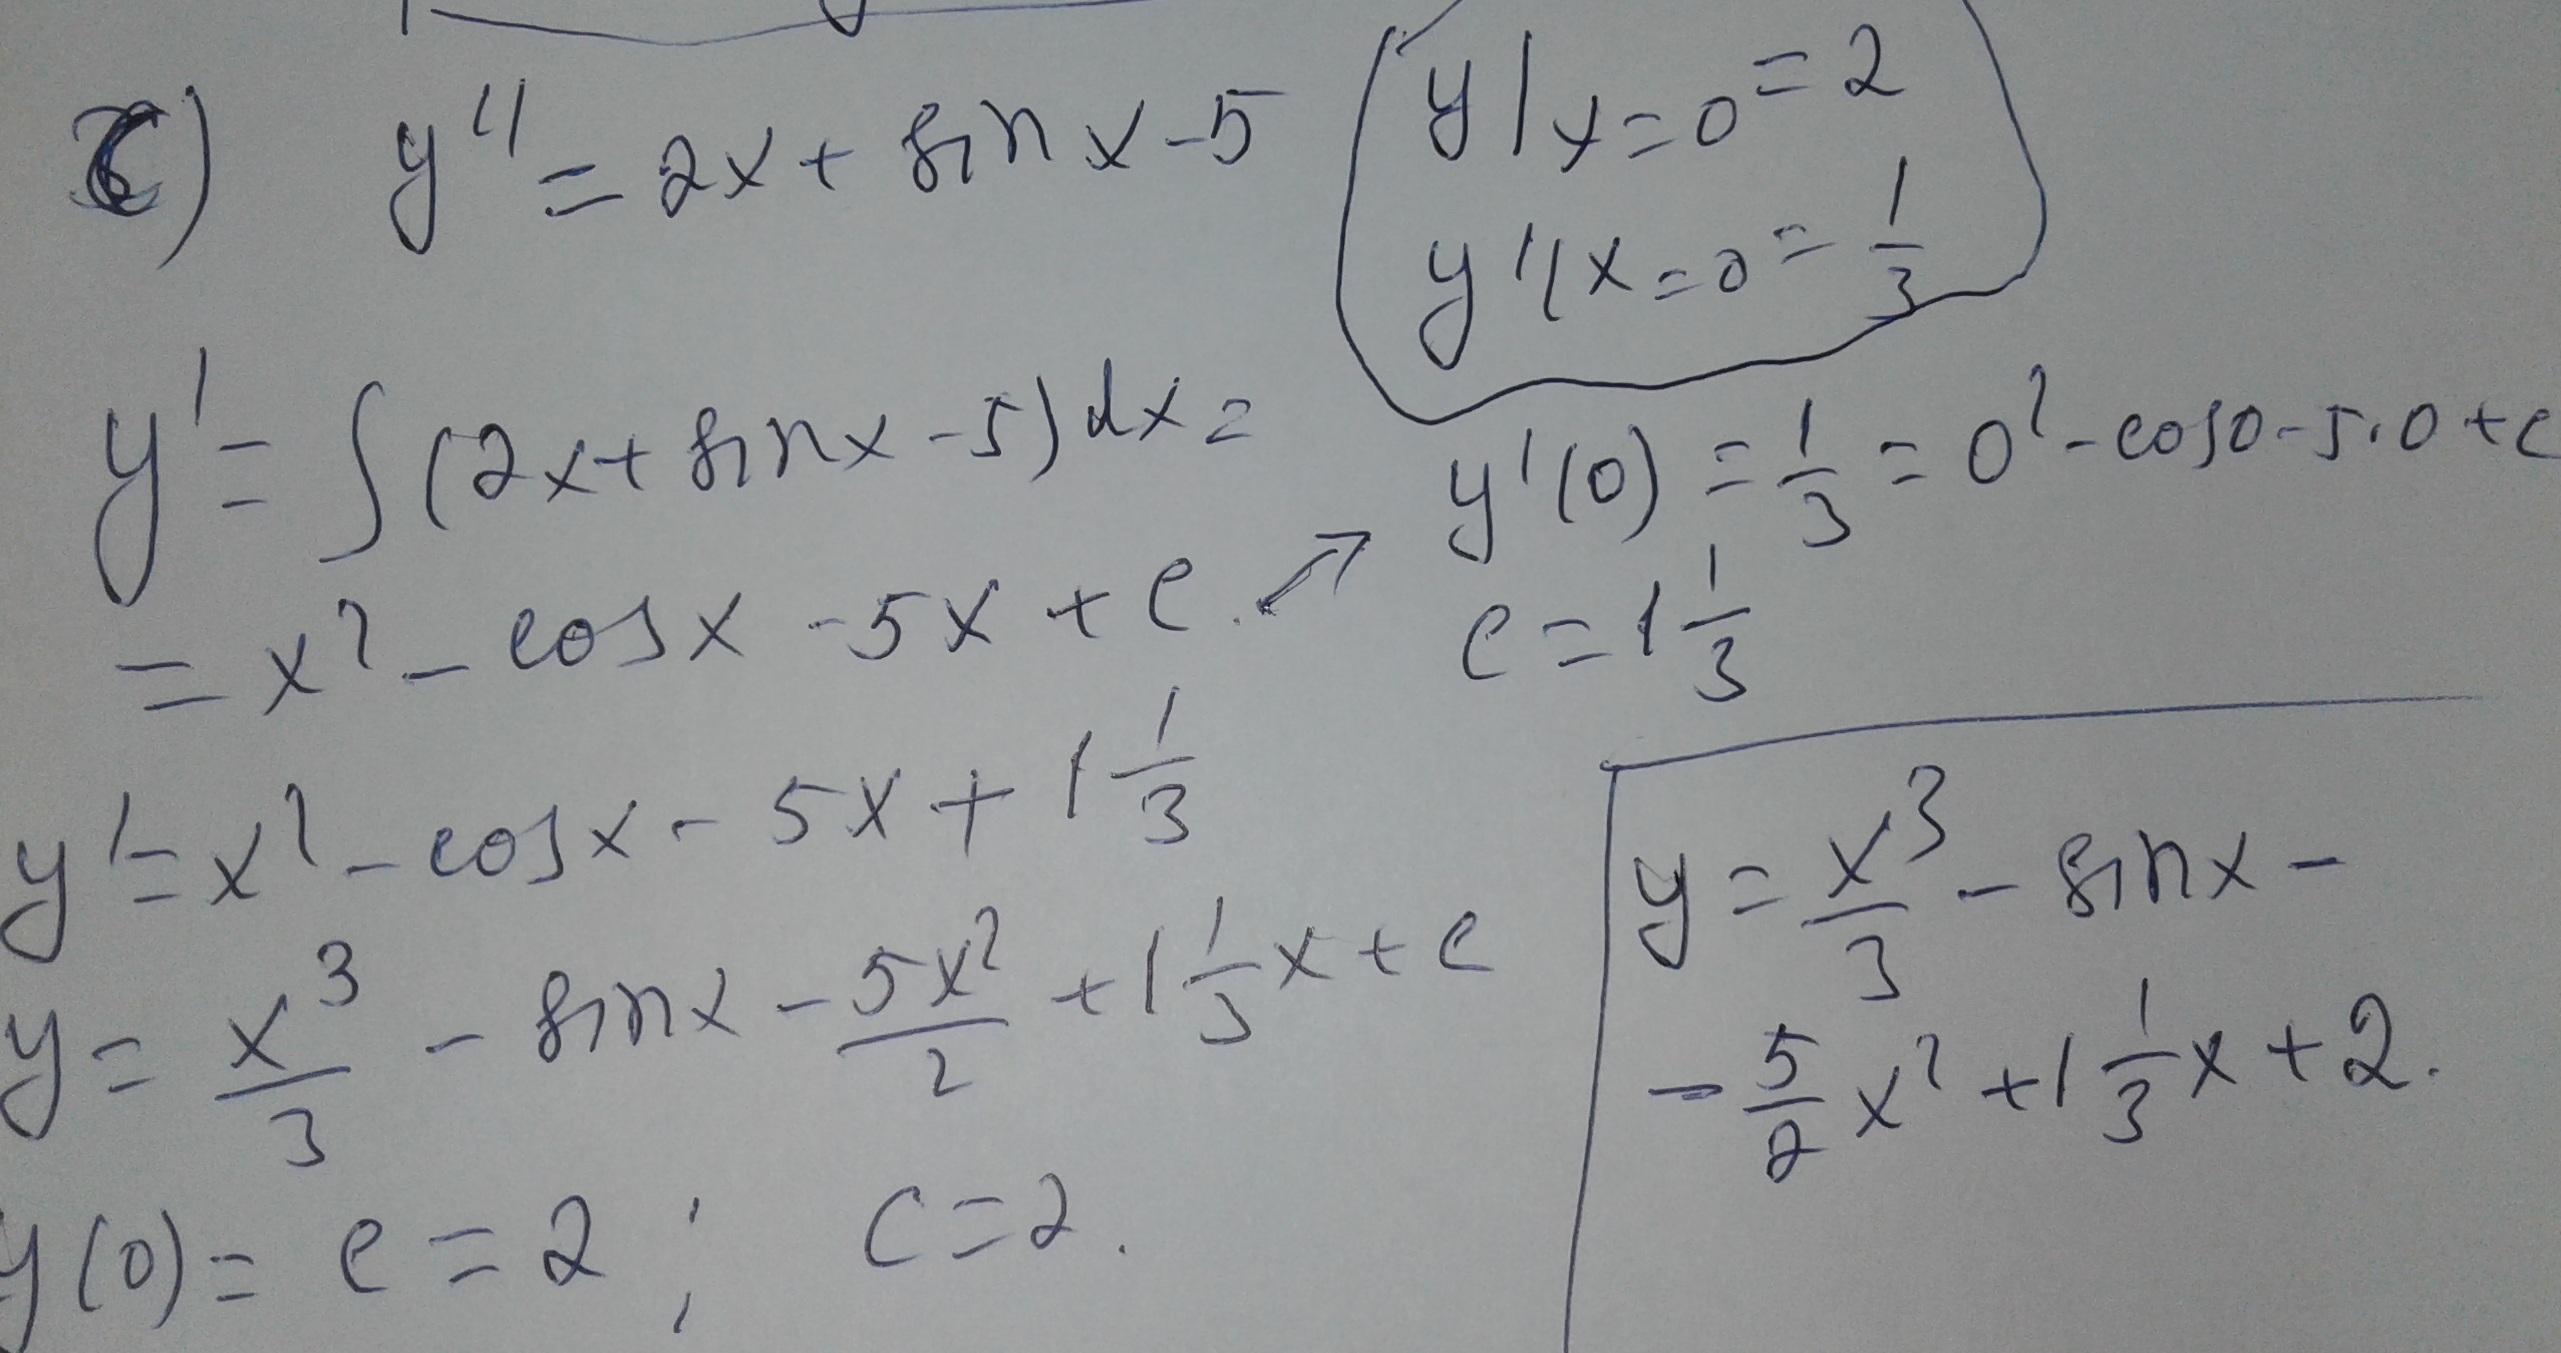 y'' = 2x + sin x - 5
y|x=0 = 2
y'|x=0 = 1/3
y' = ∫(2x + sin x - 5)dx =
= x² - cos x - 5x + c.
y'(0) = 1/3 = 0² - cos 0 - 5·0 + c
c = 1 1/3
y' = x² - cos x - 5x + 1 1/3
y = x³/3 - sin x - 5x²/2 + 1 1/3 x + c
y(0) = c = 2 ; c = 2.
y = x³/3 - sin x -
- 5/2 x² + 1 1/3 x + 2.